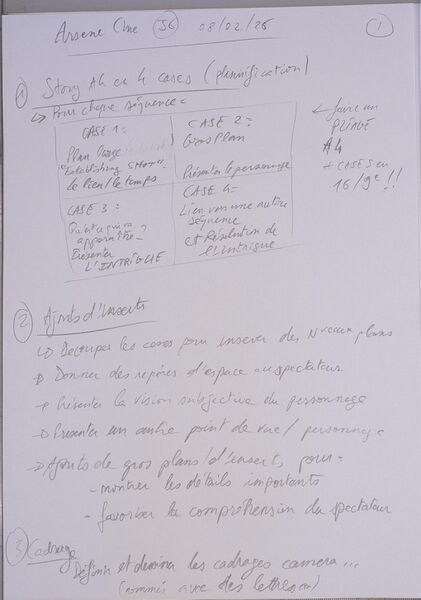 Arsene Cine J6 08/02/26 1
1 Story A4 en 4 cases (planification)
↳ Pour chaque séquence =
CASE 1 =
Plan large
"Establishing SHOT"
le lieu/le temps
CASE 2 =
Gros Plan
Présenter le personnage
← faire un
PLIAGE
A4
+ CASES en
16/9e !!
CASE 3 =
Qu'est-ce qui va
apparaître ?
Présenter
L'INTRIGUE
CASE 4 =
Lien vers une autre
séquence
et Résolution de
l'intrigue
2 Ajouts d'inserts
↳ Découper les cases pour insérer des Nveaux plans
→ Donner des repères d'espace au spectateur
→ Présenter la vision subjective du personnage
→ Présenter un autre point de vue / personnage
→ Ajouts de gros plans / d'inserts, pour =
- montrer les détails importants
- favoriser la compréhension du spectateur
3 Cadrage
Définir et les cadrages camera...
(nommés avec des lettres)